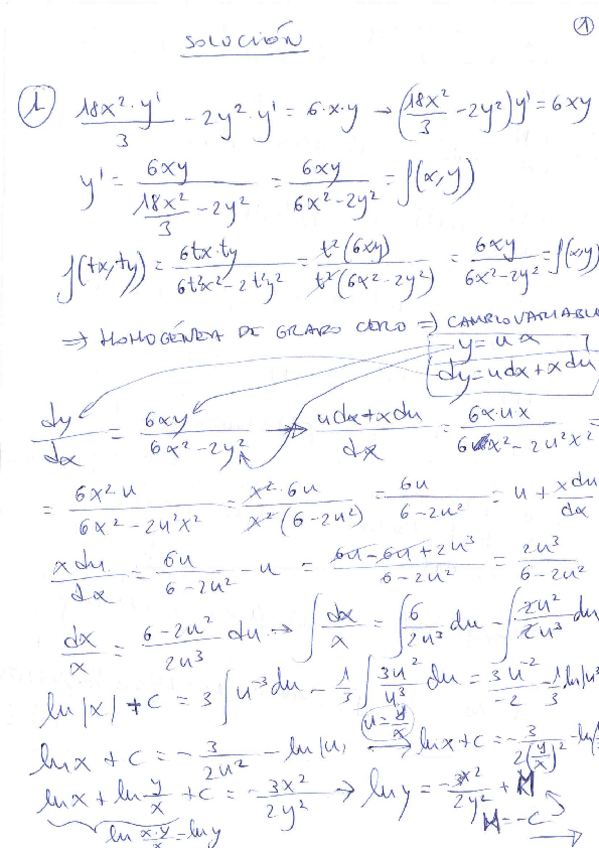 ①
SOLUCIÓN
① 18x²·y'/3 - 2y²·y' = 6·x·y → (18x²/3 - 2y²)y' = 6xy
y' = 6xy/(18x²/3 - 2y²) = 6xy/(6x² - 2y²) = f(x,y)
f(tx,ty) = 6tx·ty/(6t²x² - 2t²y²) = t²(6xy)/(t²(6x² - 2y²)) = 6xy/(6x² - 2y²) = f(x,y)
⇒ HOMOGÉNEA DE GRADO CERO ⇒ CAMBIO VARIABLE
y = ux
dy = udx + xdu
dy/dx = 6xy/(6x² - 2y²) → (udx + xdu)/dx = 6x·ux/(6x² - 2u²x²) =
= 6x²u/(6x² - 2u²x²) = x²·6u/(x²(6 - 2u²)) = 6u/(6 - 2u²) = u + xdu/dx
xdu/dx = 6u/(6 - 2u²) - u = (6u - 6u + 2u³)/(6 - 2u²) = 2u³/(6 - 2u²)
dx/x = (6 - 2u²)/2u³ du → ∫dx/x = ∫6/2u³ du - ∫2u²/2u³ du
ln|x| + C = 3∫u⁻³du - 1/3∫3u²/u³ du = 3u⁻²/-2 - 1/3 ln|u³
u = y/x
ln x + C = -3/2u² - ln|u| → ln x + C = -3/2(y/x)² - ln
ln x + ln y/x + C = -3x²/2y² → ln y = -3x²/2y² + M
ln x·y/x = ln y
M = -C